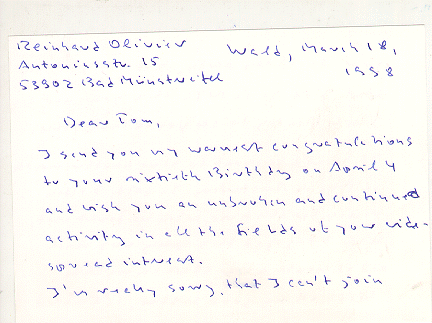 Reinhard Olivier Wald, March 18,
Antoniusstr. 15 1998
53902 Bad Münstereifel
Dear Tom,
I send you my warmest congratulations
to your sixtieth Birthday on April 4
and wish you an unbroken and continued
activity in all the fields of your wide-
spread interest.
I'm really sorry, that I can't join